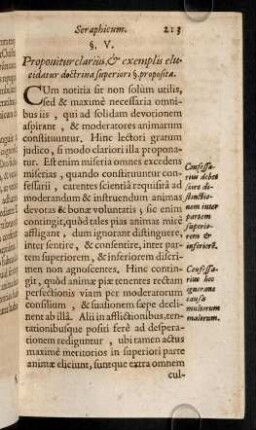 Seraphicum. 213
§. V.
Proponitur clarius, & exemplis elu-
cidatur doctrina superiori §. proposita.
CUm notitia sit non solùm utilis,
sed & maximè necessaria omni-
bus iis, qui ad solidam devotionem
aspirant, & moderatores animarum
constituuntur. Hinc lectori gratum
judico, si modo clariori illa propona-
tur. Est enim miseria omnes excedens
miserias, quando constituuntur con-
fessarii, carentes scientiâ requisitâ ad
moderandum & instruendum animas
devotas & bonæ voluntatis, sic enim
contingit, quòd tales pias animas mirè
affligant, dum ignorant distinguere,
inter sentire, & consentire, inter par-
tem superiorem, & inferiorem discri-
men non agnoscentes. Hinc contin-
git, quòd animæ piæ tenentes rectam
perfectionis viam per moderatorum
consilium, & suasionem sæpe decli-
nent ab illâ. Alii in afflictionibus, ten-
tationibusque positi ferè ad despera-
tionem rediguntur, ubi tamen actus
maximè meritorios in superiori parte
animæ eliciunt, suntque extra omnem
cul-
Confessa-
rius debet
scire di-
stinctio-
nem inter
partem
superio-
rem &
inferiorē.
Confessa-
rius hoc
ignorans
causa
multorum
malorum.